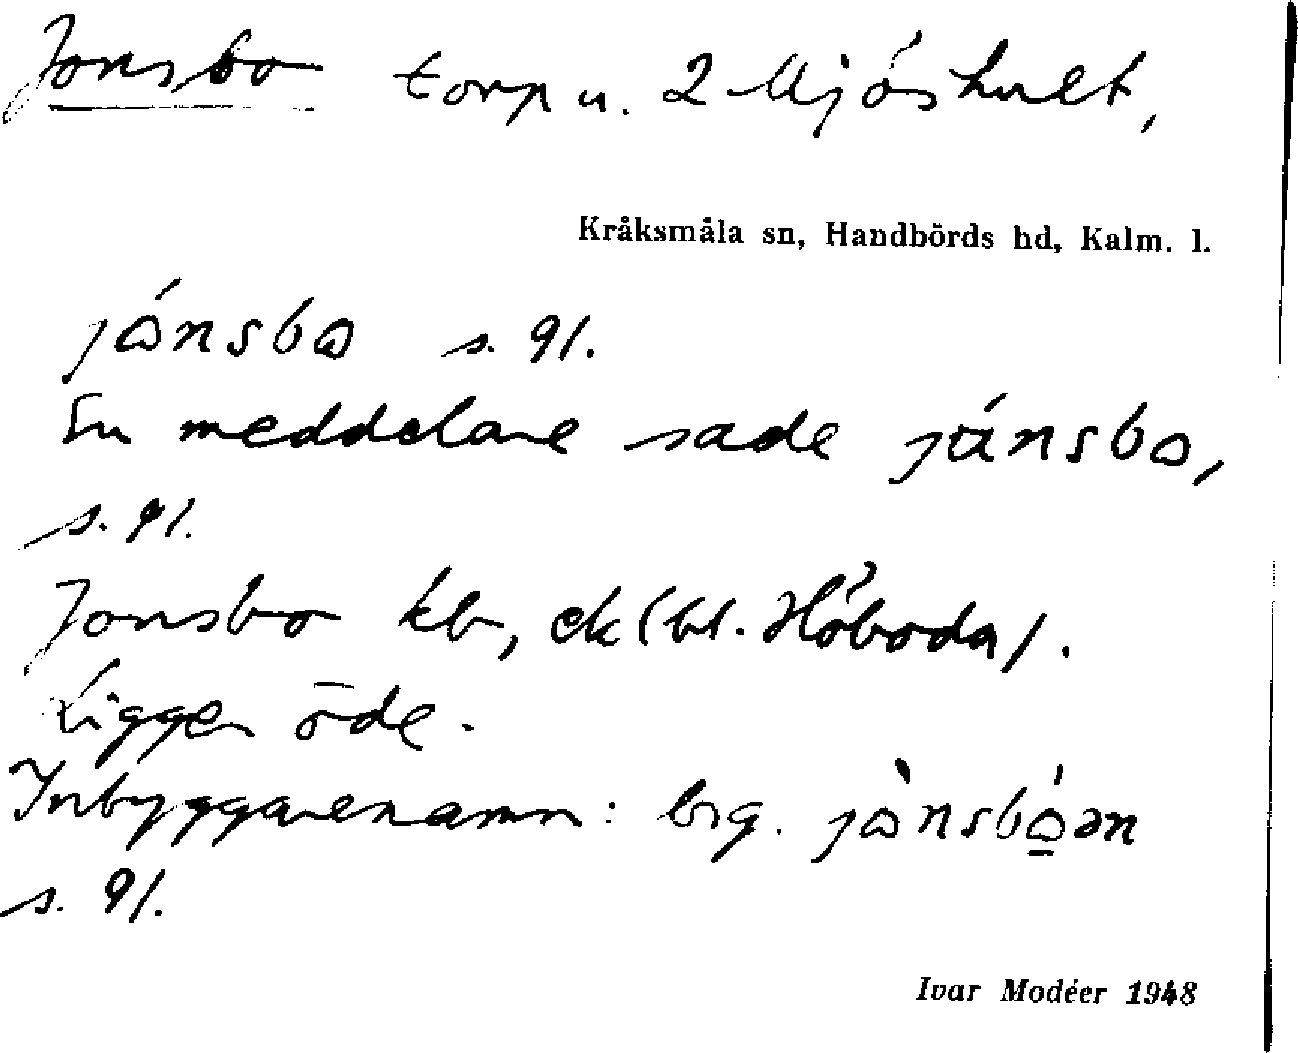 Jonsbo torp u. 2 Mjöshult,
Kråksmåla sn, Handbörds hd, Kalm. l.
jɷ́nsbɷ s. 91.
En meddelare sade jánsbɷ,
s. 91.
Jonsbo kb, ek (bl. Höboda).
Ligger öde.
Inbyggarenamn: brg. jɷ̀nsbɷ́ən
s. 91.
Ivar Modéer 1948